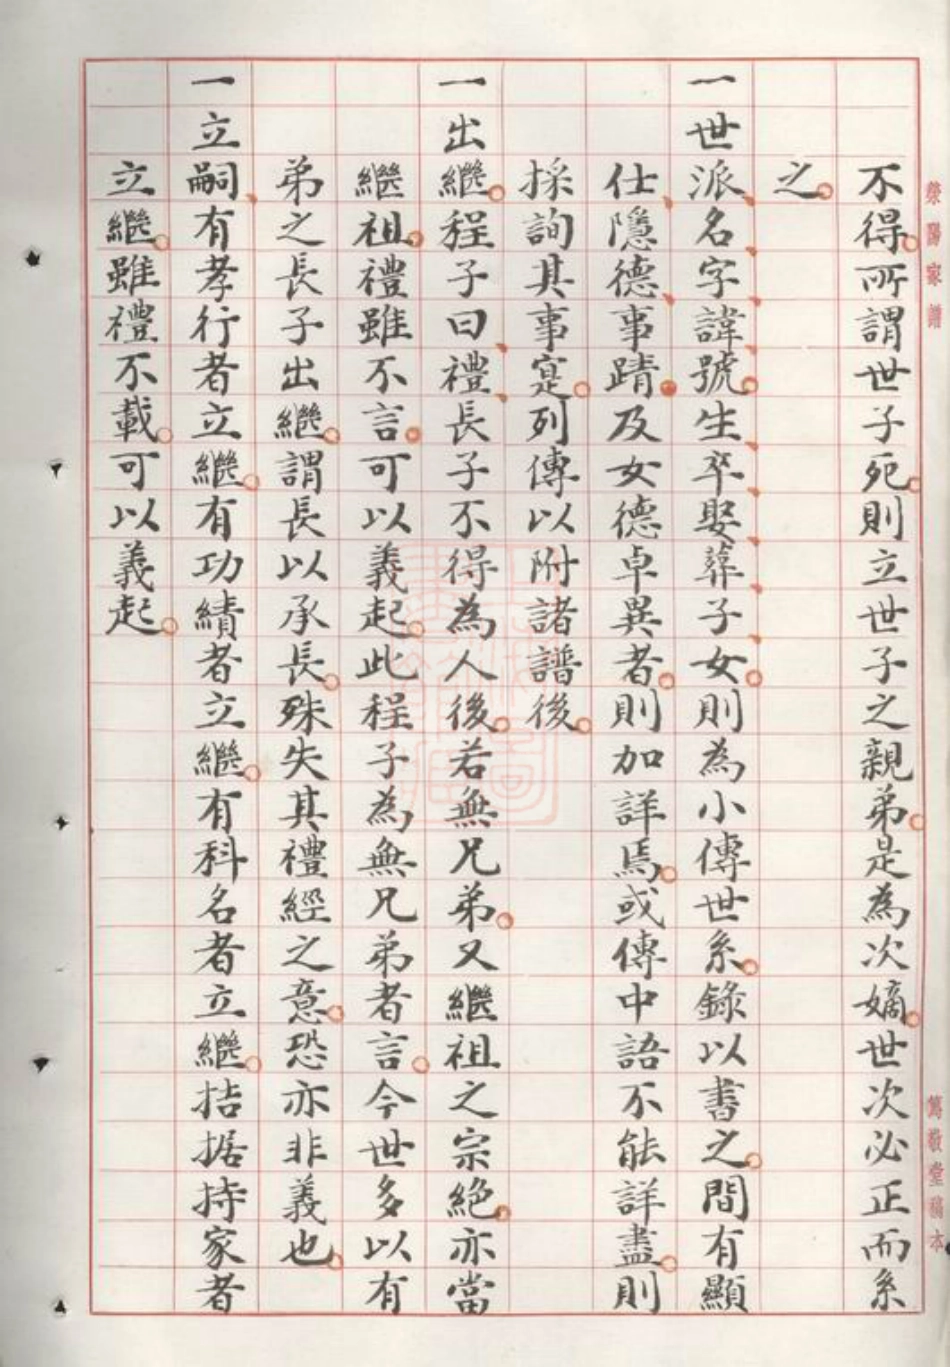 滎陽家譜
篤敬堂稿本
不得所謂世子死則立世子之親弟是為次嫡世次必正而系
之
一世派名字諱號生卒娶葬子女則為小傳世系錄以書之間有顯
仕隱德事蹟及女德卓異者則加詳焉或傳中語不能詳盡則
採詢其事寔列傳以附諸譜後
一出繼程子曰禮長子不得為人後若無兄弟又繼祖之宗絕亦當
繼祖禮雖不言可以義起此程子為無兄弟者言今世多以有
弟之長子出繼謂長以承長殊失其禮經之意恐亦非義也
一立嗣有孝行者立繼有功績者立繼有科名者立繼拮据持家者
立繼雖禮不載可以義起